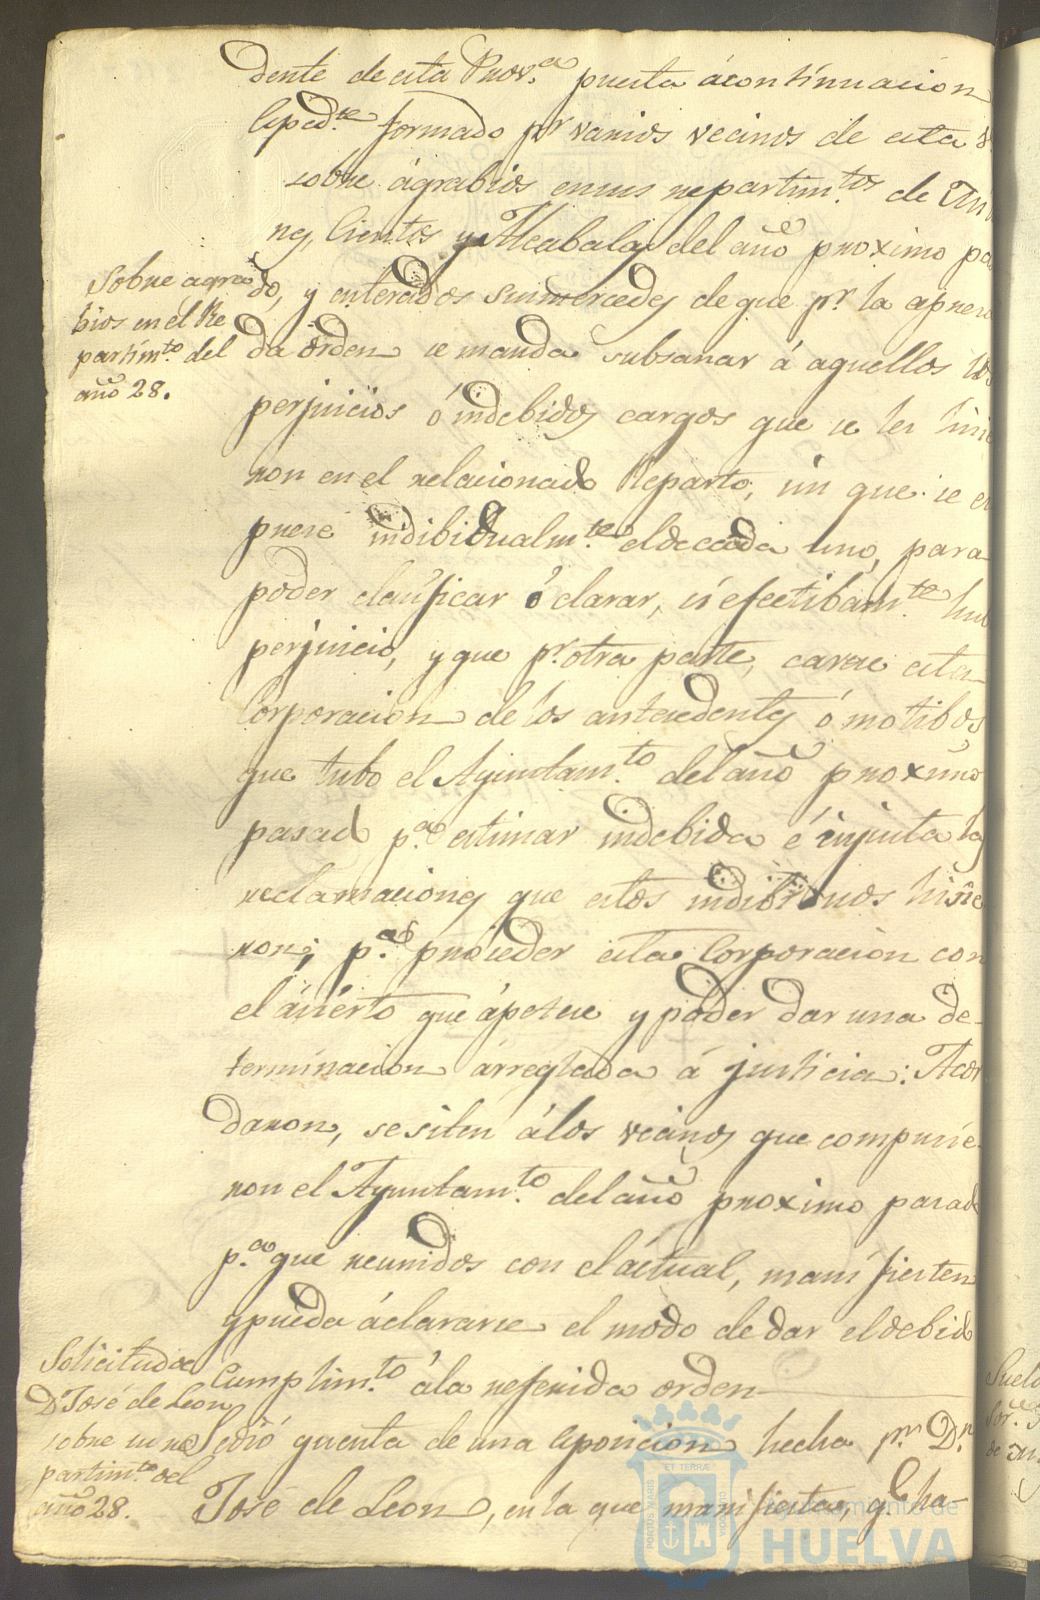 dente de esta Prov.ª puesta ácontinuacion
Esped.te formado p.r varios vecinos de esta
sobre ágrabios en sus repartim.tos de
Cientos y Alcabalas del año proximo pa
Sobre agra
bios en él Re
partim.to del
año 28.
do, y enterados sus mercedes de que p.r la apre
da órden se manda subsanar á aquellos los
perjuicios ó indebidos cargos que se les hicie
ron en el relacionado Reparto, sin que se es
prese indibidualm.te el de cada uno, para
poder clasificar ó clarar, si efectibam.te hu
perjuicio, y que p.r otra parte, carece esta
Corporacion de los antecedentes ó motibos
que tubo el Ayuntam.to del año proximo
pasad p.ª estimar indebida é injusta las
reclamaciones que estos indibiduos hisie
ron; p.ª proceder esta Corporacion con
el ácierto que ápetece y poder dar una de-
terminacion árreglada á justicia: Acor
daron, se siten álos vecinos que compusie-
ron el Ayuntam.to del año proximo pasad
p.ª que reunidos con el áctual, manifiesten
y pueda áclararse el modo de dar el debid
Cumplim.to ála referida orden
Solicitud de
D.n José de Leon
sobre su re
partim.to del
año 28.
Se dió quenta de una esposicion hecha p.r D.n
José de Leon, en la que manifiesta, q.e ha-
PORTUS MARIS
ET TERRÆ
CUSTODIA
Ayuntamiento de
HUELVA